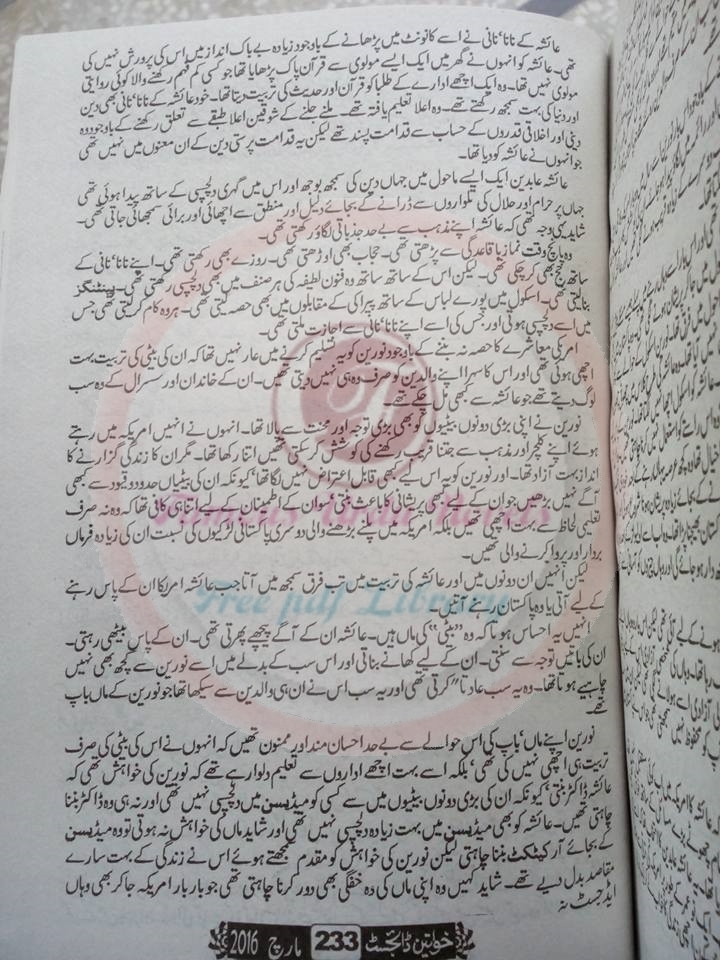 عائشہ کے نانا، نانی نے اسے کانونٹ میں پڑھانے کے باوجود زیادہ بے باک انداز میں اس کی پرورش نہیں کی
تھی۔ عائشہ کو انہوں نے گھر میں ایک ایسے مولوی سے قرآن پاک پڑھایا تھا جو کسی کم فہم رکھنے والا کوئی روایتی
مولوی نہیں تھا۔ وہ ایک اچھے ادارے کے طلبا کو قرآن اور حدیث کی تربیت دیتا تھا۔ خود عائشہ کے نانا، نانی بھی دین
اور دنیا کی بہت سمجھ رکھتے تھے۔ وہ اعلا تعلیم یافتہ تھے۔ ملنے جلنے کے شوقین اعلا طبقے سے تعلق رکھنے کے باوجود وہ
دینی اور اخلاقی قدروں کے حساب سے قدامت پسند تھے لیکن یہ قدامت پرستی دین کے ان معنوں میں نہیں تھی
جو انہوں نے عائشہ کو دیا تھا۔
عائشہ عابدین ایک ایسے ماحول میں جہاں دین کی سمجھ بوجھ اور اس میں گہری دلچسپی کے ساتھ پیدا ہوئی تھی
جہاں پر حرام اور حلال کی تلواروں سے ڈرانے کے بجائے دلیل اور منطق سے اچھائی اور برائی سمجھائی جاتی تھی۔
شاید یہی وجہ تھی کہ عائشہ اپنے مذہب سے بے حد جذباتی لگاؤ رکھتی تھی۔
وہ پانچ وقت نماز باقاعدگی سے پڑھتی تھی۔ حجاب بھی اوڑھتی تھی۔ روزے بھی رکھتی تھی۔ اپنے نانا، نانی کے
ساتھ حج بھی کر چکی تھی۔ لیکن اس کے ساتھ ساتھ وہ فنون لطیفہ کی ہر صنف میں بھی دلچسپی رکھتی تھی۔ پینٹنگز
بنالیتی تھی۔ اسکول میں پورے لباس کے ساتھ پیراکی کے مقابلوں میں بھی حصہ لیتی تھی۔ ہر وہ کام کر لیتی تھی جس
میں اسے دلچسپی ہوتی اور جس کی اسے اپنے نانا، نانی سے اجازت ملتی تھی۔
امریکی معاشرے کا حصہ نہ بننے کے باوجود نورین کو یہ تسلیم کرنے میں عار نہیں تھا کہ ان کی بیٹی کی تربیت بہت
اچھی ہوئی تھی اور اس کا سہرا اپنے والدین کو صرف وہ ہی نہیں دیتی تھیں۔ ان کے خاندان اور سسرال کے وہ سب
لوگ دیتے تھے جو عائشہ سے کبھی مل چکے تھے۔
نورین نے اپنی بڑی دونوں بیٹیوں کو بھی بڑی توجہ اور محنت سے پالا تھا۔ انہوں نے انہیں امریکہ میں رہتے
ہوئے اپنے کلچر اور مذہب سے جتنا قریب رکھنے کی کوشش کر سکتی تھیں اتنا رکھا تھا۔ مگر ان کا زندگی گزارنے کا
انداز بہت آزاد تھا۔ اور نورین کو یہ اس لیے بھی قابل اعتراض نہیں لگا تھا، کیونکہ ان کی بیٹیاں حدود و قیود سے کبھی
آگے نہیں بڑھیں جو ان کے لیے کبھی پریشانی کا باعث بنتی، سو ان کے اطمینان کے لیے اتنا ہی کافی تھا کہ وہ نہ صرف
تعلیمی لحاظ سے بہت اچھی تھیں بلکہ امریکہ میں پلے بڑھنے والی دوسری پاکستانی لڑکیوں کی نسبت ان کی زیادہ فرماں
بردار اور پروا کرنے والی تھیں۔
لیکن انہیں ان دونوں میں اور عائشہ کی تربیت میں تب فرق سمجھ میں آتا جب عائشہ امریکا ان کے پاس رہنے
کے لیے آتی یا وہ پاکستان رہنے آتیں۔
انہیں یہ احساس ہوتا کہ وہ "بیٹی" کی ماں ہیں۔ عائشہ ان کے آگے پیچھے پھرتی تھی۔ ان کے پاس بیٹھی رہتی۔
ان کی باتیں توجہ سے سنتی۔ ان کے لیے کھانے بناتی اور اس سب کے بدلے میں اسے نورین سے کچھ بھی نہیں
چاہیے ہوتا تھا۔ وہ یہ سب عادتا" کرتی تھی اور یہ سب اس نے ان ہی والدین سے سیکھا تھا جو نورین کے ماں باپ
تھے۔
نورین اپنے ماں، باپ کی اس حوالے سے بے حد احسان مند اور ممنون تھیں کہ انہوں نے اس کی بیٹی کی صرف
تربیت ہی اچھی نہیں کی تھی، بلکہ اسے بہت اچھے اداروں سے تعلیم دلوا رہے تھے کہ نورین کی خواہش تھی کہ
عائشہ ڈاکٹر بنتی، کیونکہ ان کی بڑی دونوں بیٹیوں میں سے کسی کو میڈیسن میں دلچسپی نہیں تھی اور نہ ہی وہ ڈاکٹر بننا
چاہتی تھیں۔ عائشہ کو بھی میڈیسن میں بہت زیادہ دلچسپی نہیں تھی اور شاید ماں کی خواہش نہ ہوتی تو وہ میڈیسن
کے بجائے آرکیٹکٹ بننا چاہتی لیکن نورین کی خواہش کو مقدم سمجھتے ہوئے اس نے زندگی کے بہت سارے
مقاصد بدل دیے تھے۔ شاید کہیں وہ اپنی ماں کی وہ خفگی بھی دور کرنا چاہتی تھی جو بار بار امریکہ جا کر بھی وہاں
ایڈجسٹ نہ
Famous Urdu Novels
Free pdf Library
خواتین ڈائجسٹ 233 مارچ 2016